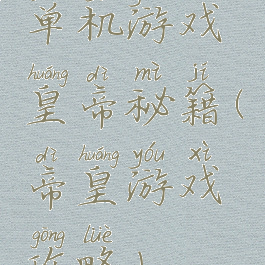 单机游戏
huáng dì mì jí
皇帝秘籍(
dì huáng yóu xì
帝皇游戏
gōng lüè
攻略)